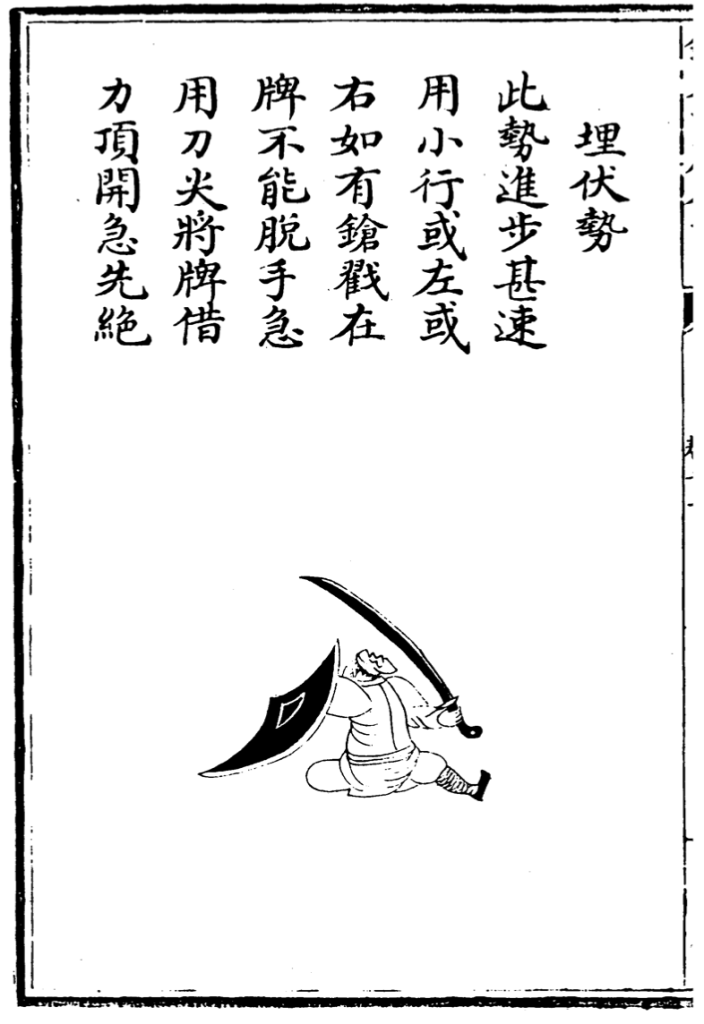 埋伏勢
此勢進步甚速
用小行或左或
右如有鎗戳在
牌不能脫手急
用刀尖將牌借
力頂開急先絶